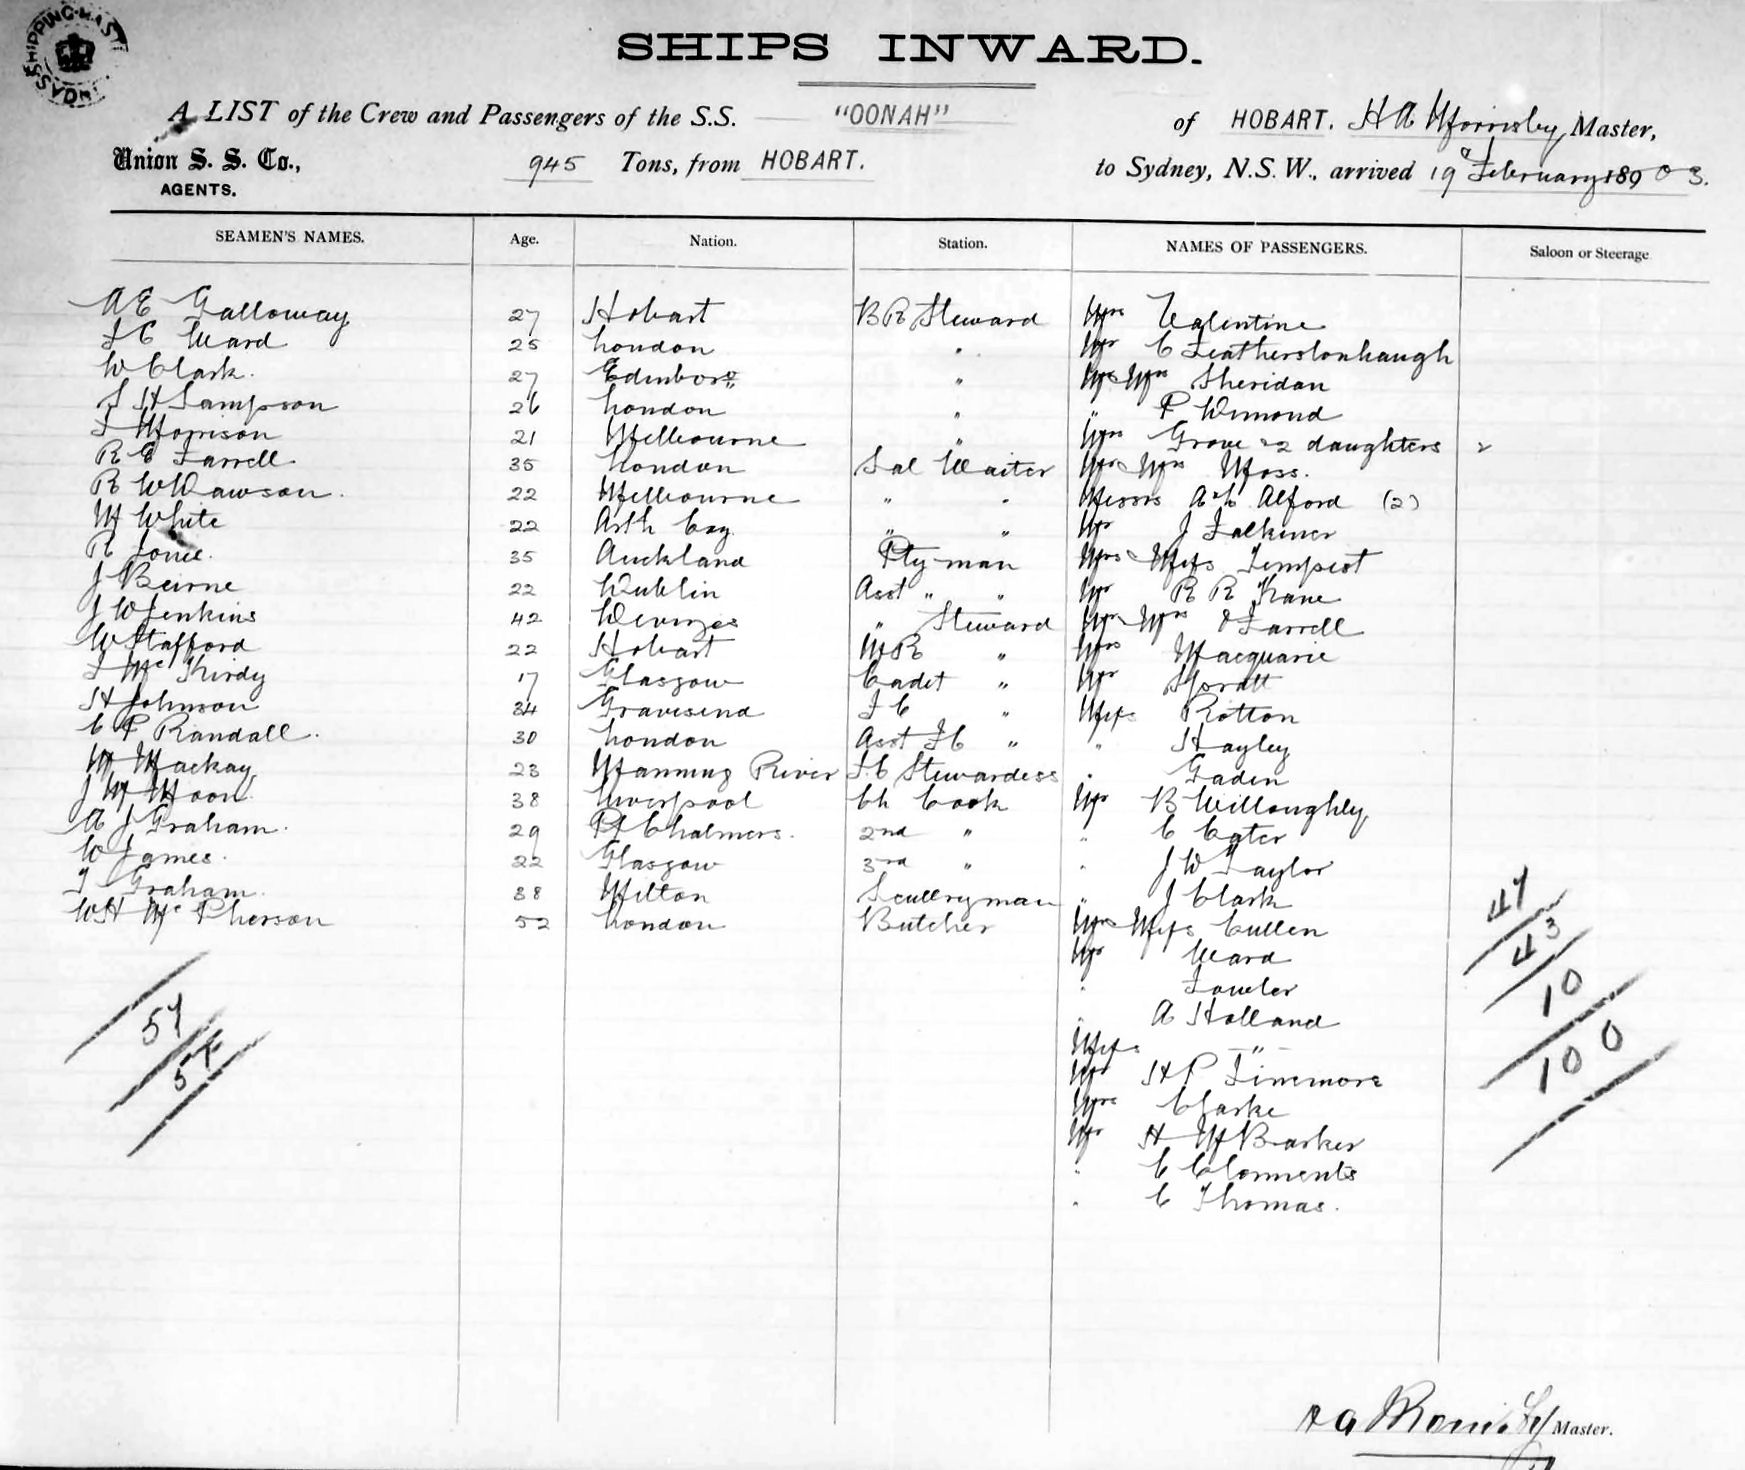 SHIPPING MAST
SYDNEY
SHIPS INWARD.
A LIST of the Crew and Passengers of the S.S. "OONAH" of HOBART. H A Mornisby Master,
Union S. S. Co., 945 Tons, from HOBART. to Sydney, N.S.W., arrived 19 February 18903.
AGENTS.
SEAMEN'S NAMES. Age. Nation. Station. NAMES OF PASSENGERS. Saloon or Steerage
A E Galloway 27 Hobart B R Steward Mrs Valentine
F C Ward 25 London " Mr C Featherstonhaugh
W Clark. 27 Edinboro " Mr & Mrs Sheridan
S H Sampson 26 London " " P Dimond
F Morrison 21 Melbourne " Mrs Grove & 2 daughters 2
R E Farrell 35 London Sal Waiter Mr & Mrs Moss.
R W Dawson. 22 Melbourne " " Messrs A & C Alford (2)
M White 22 " " Mr J Falkiner
R 35 Auckland Ptyman Mrs & Miss Tempest
J Beirne 22 Dublin Asst " " Mr R R Kane
J W Jenkins 42 Devizes " Steward Mr & Mrs O'Farrell
W Stafford 22 Hobart M R " Mrs Macquarie
F McKirdy 17 Glasgow Cadet " Mr
H Johnson 34 Gravesend F C " Miss Rotton
C P Randall. 30 London Asst F C " " Hayley
M Mackay 23 Manning River F.C Stewardess " Gaden
J M Moon 38 Liverpool Ch Cook Mr B Willoughby
A J Graham. 29 Pt Chalmers. 2nd " " C Cater
W James. 22 Glasgow 3rd " " J W Taylor
T Graham. 38 Milton Scullryman " J Clark
W H McPherson 52 London Butcher Mr & Miss Cullen
Mr Ward
" Fowler
" A Holland
Miss "
Mr H P Finemore
Mrs Clarke
Mr H M Barker
" C Clements
" C Thomas.
57
57
47
43
10
100
Master.